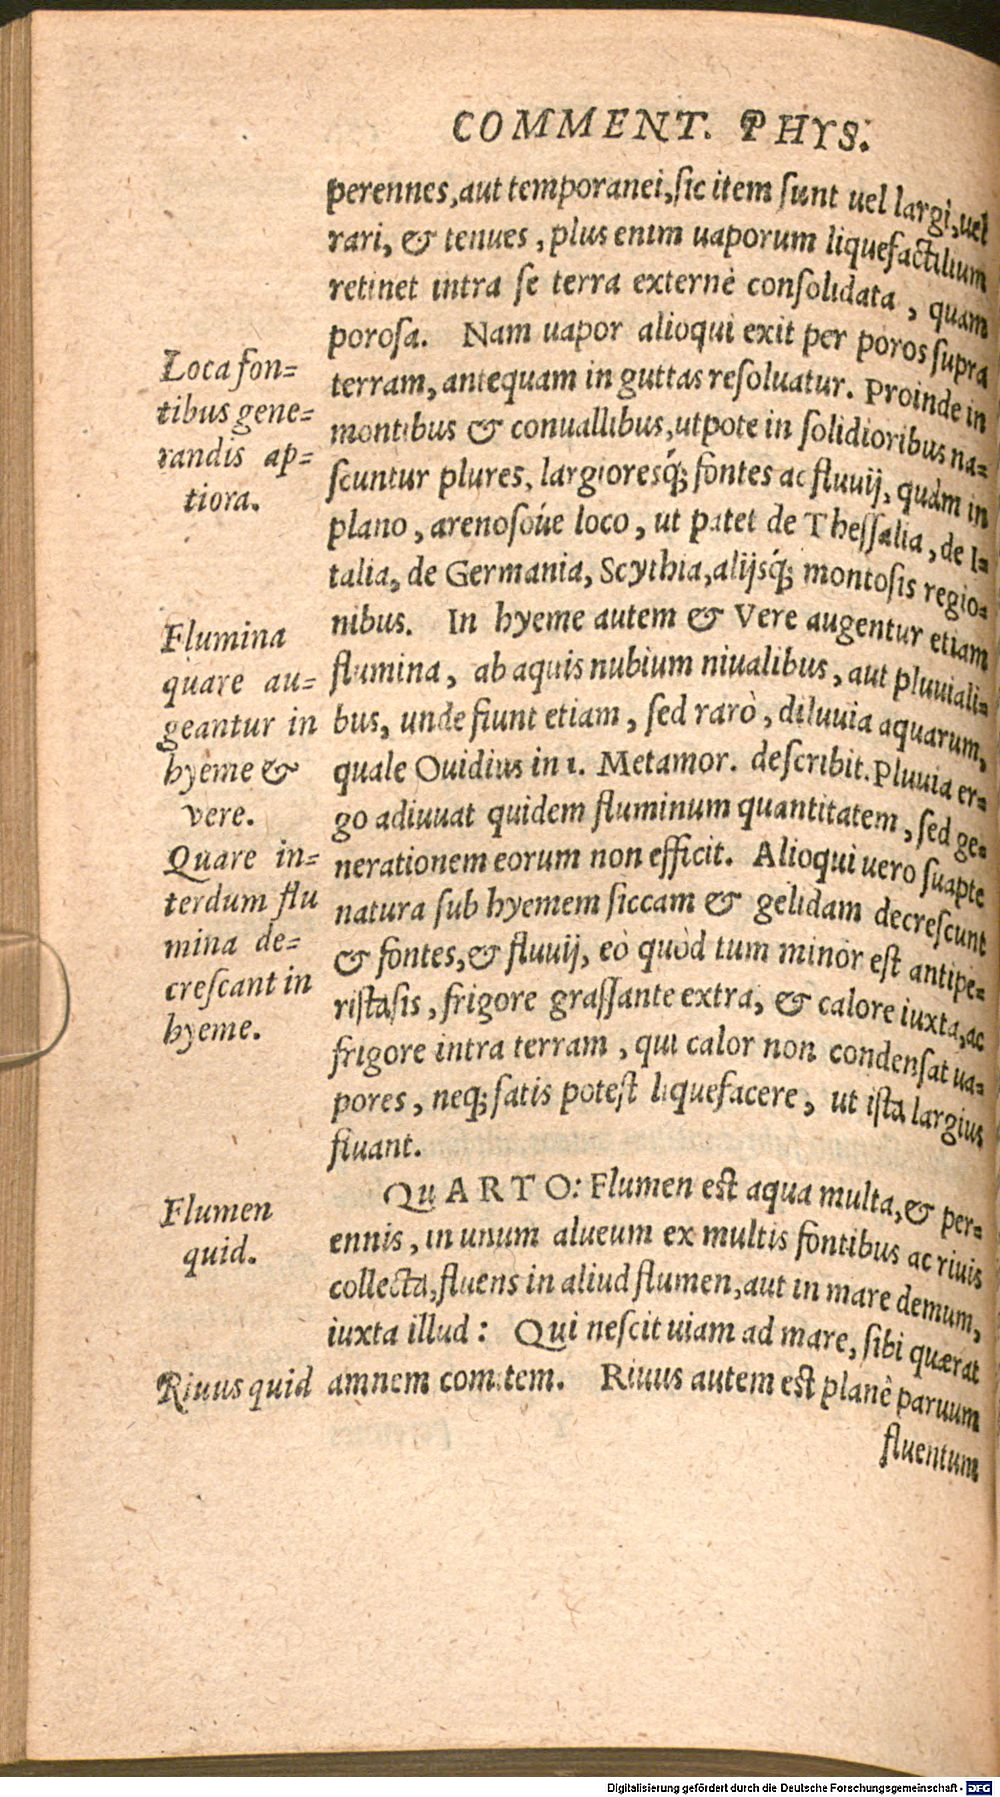 COMMENT. PHYS.
perennes, aut temporanei, ſic item ſunt uel largi, uel
rari, & tenues, plus enim uaporum liquefactilium
retinet intra ſe terra externè conſolidata, quam
poroſa. Nam uapor alioqui exit per poros ſupra
terram, antequam in guttas reſoluatur. Proinde in
montibus & conuallibus, utpote in ſolidioribus na=
ſcuntur plures, largioresq́; fontes ac fluuij, quàm in
plano, arenoſoúe loco, ut patet de Theſſalia, de I=
talia, de Germania, Scythia, alijsq́; montoſis regio=
nibus. In hyeme autem & Vere augentur etiam
flumina, ab aquis nubium niualibus, aut pluuiali=
bus, unde fiunt etiam, ſed rarò, diluuia aquarum,
quale Ouidius in 1. Metamor. deſcribit. Pluuia er=
go adiuuat quidem fluminum quantitatem, ſed ge=
nerationem eorum non efficit. Alioqui uero ſuapte
natura ſub hyemem ſiccam & gelidam decreſcunt
& fontes, & fluuij, eò quòd tum minor eſt antipe=
riſtaſis, frigore graſſante extra, & calore iuxta, ac
frigore intra terram, qui calor non condenſat ua=
pores, neq; ſatis poteſt liquefacere, ut iſta largius
fluant.
QuARTO: Flumen eſt aqua multa, & per=
ennis, in unum alueum ex multis fontibus ac riuis
collecta, fluens in aliud flumen, aut in mare demum,
iuxta illud: Qui neſcit uiam ad mare, ſibi quærat
amnem comitem. Riuus autem eſt planè paruum
fluentum
Loca fon=
tibus gene=
randis ap=
tiora.
Flumina
quare au=
geantur in
hyeme &
vere.
Quare in=
terdum flu
mina de=
creſcant in
hyeme.
Flumen
quid.
Riuus quid
Digitalisierung gefördert durch die Deutsche Forschungsgemeinschaft - DFG